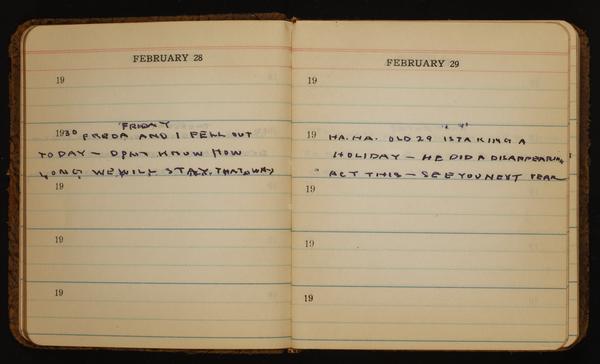 FEBRUARY 28
19
FRIDAY
1930 FREDA AND I FELL OUT
TODAY - DONT KNOW HOW
LONG WE WILL STAY THAT WAY
19
19
19
FEBRUARY 29
19
19 HA. HA. OLD 29 IS TAKING A
HOLIDAY - HE DID A DISAPPEARING
ACT THIS - SEE YOU NEXT YEAR
19
19
19